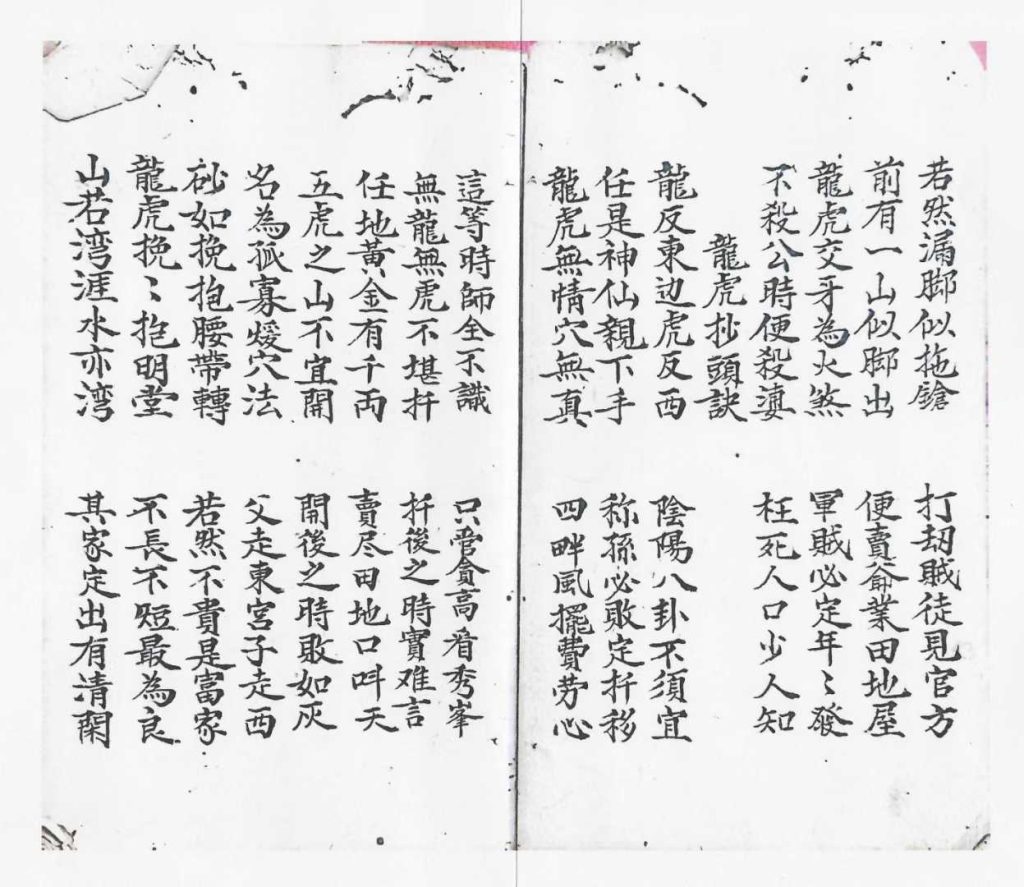 若然漏脚似拖鎗　打刼賊徒見官方
前有一山似脚出　便賣爺業田地屋
龍虎交牙為火煞　軍賊必定年〻發
不殺公時便殺婆　枉死人口少人知
龍虎抄頭訣
龍反東边虎反西　陰陽八卦不須宜
任是神仙親下手　称孫必敗定扦移
龍虎無情穴無真　四畔風擺費劳心
這等時師全不識　只管貪高看秀峯
無龍無虎不堪扦　扦後之時實难言
任地黃金有千両　賣尽田地口叫天
五虎之山不宜開　開後之時敗如灰
名為孤寡煖穴法　父走東宮子走西
砂如挽抱腰帶轉　若然不貴是富家
龍虎挽〻抱明堂　不長不短最為良
山若湾涯水亦湾　其家定出有清閑